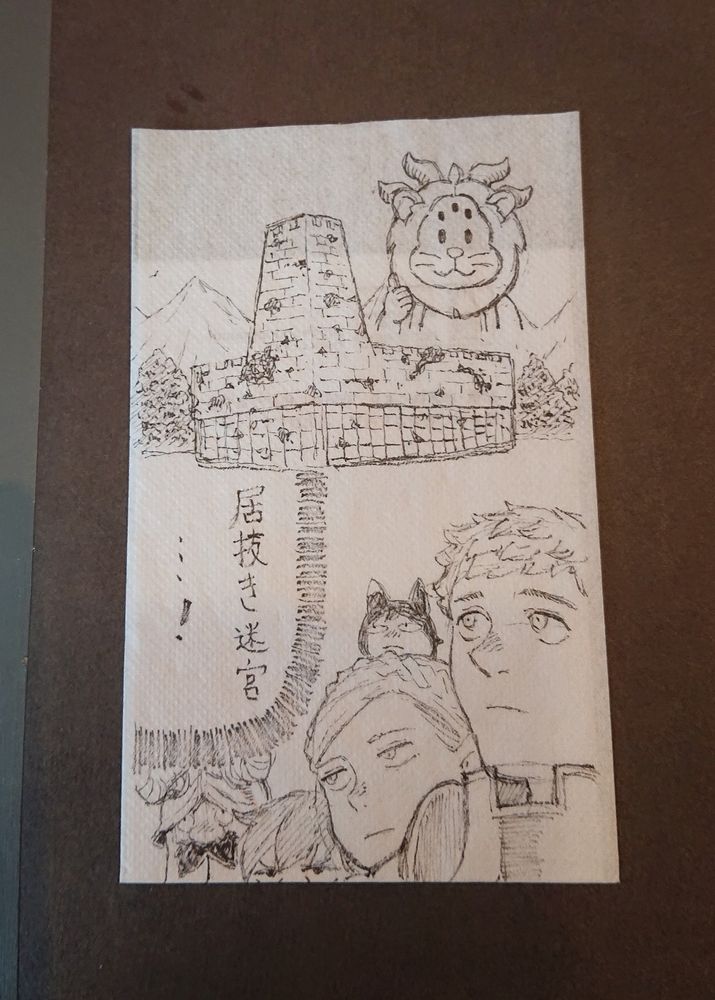 居抜き迷宮
…！